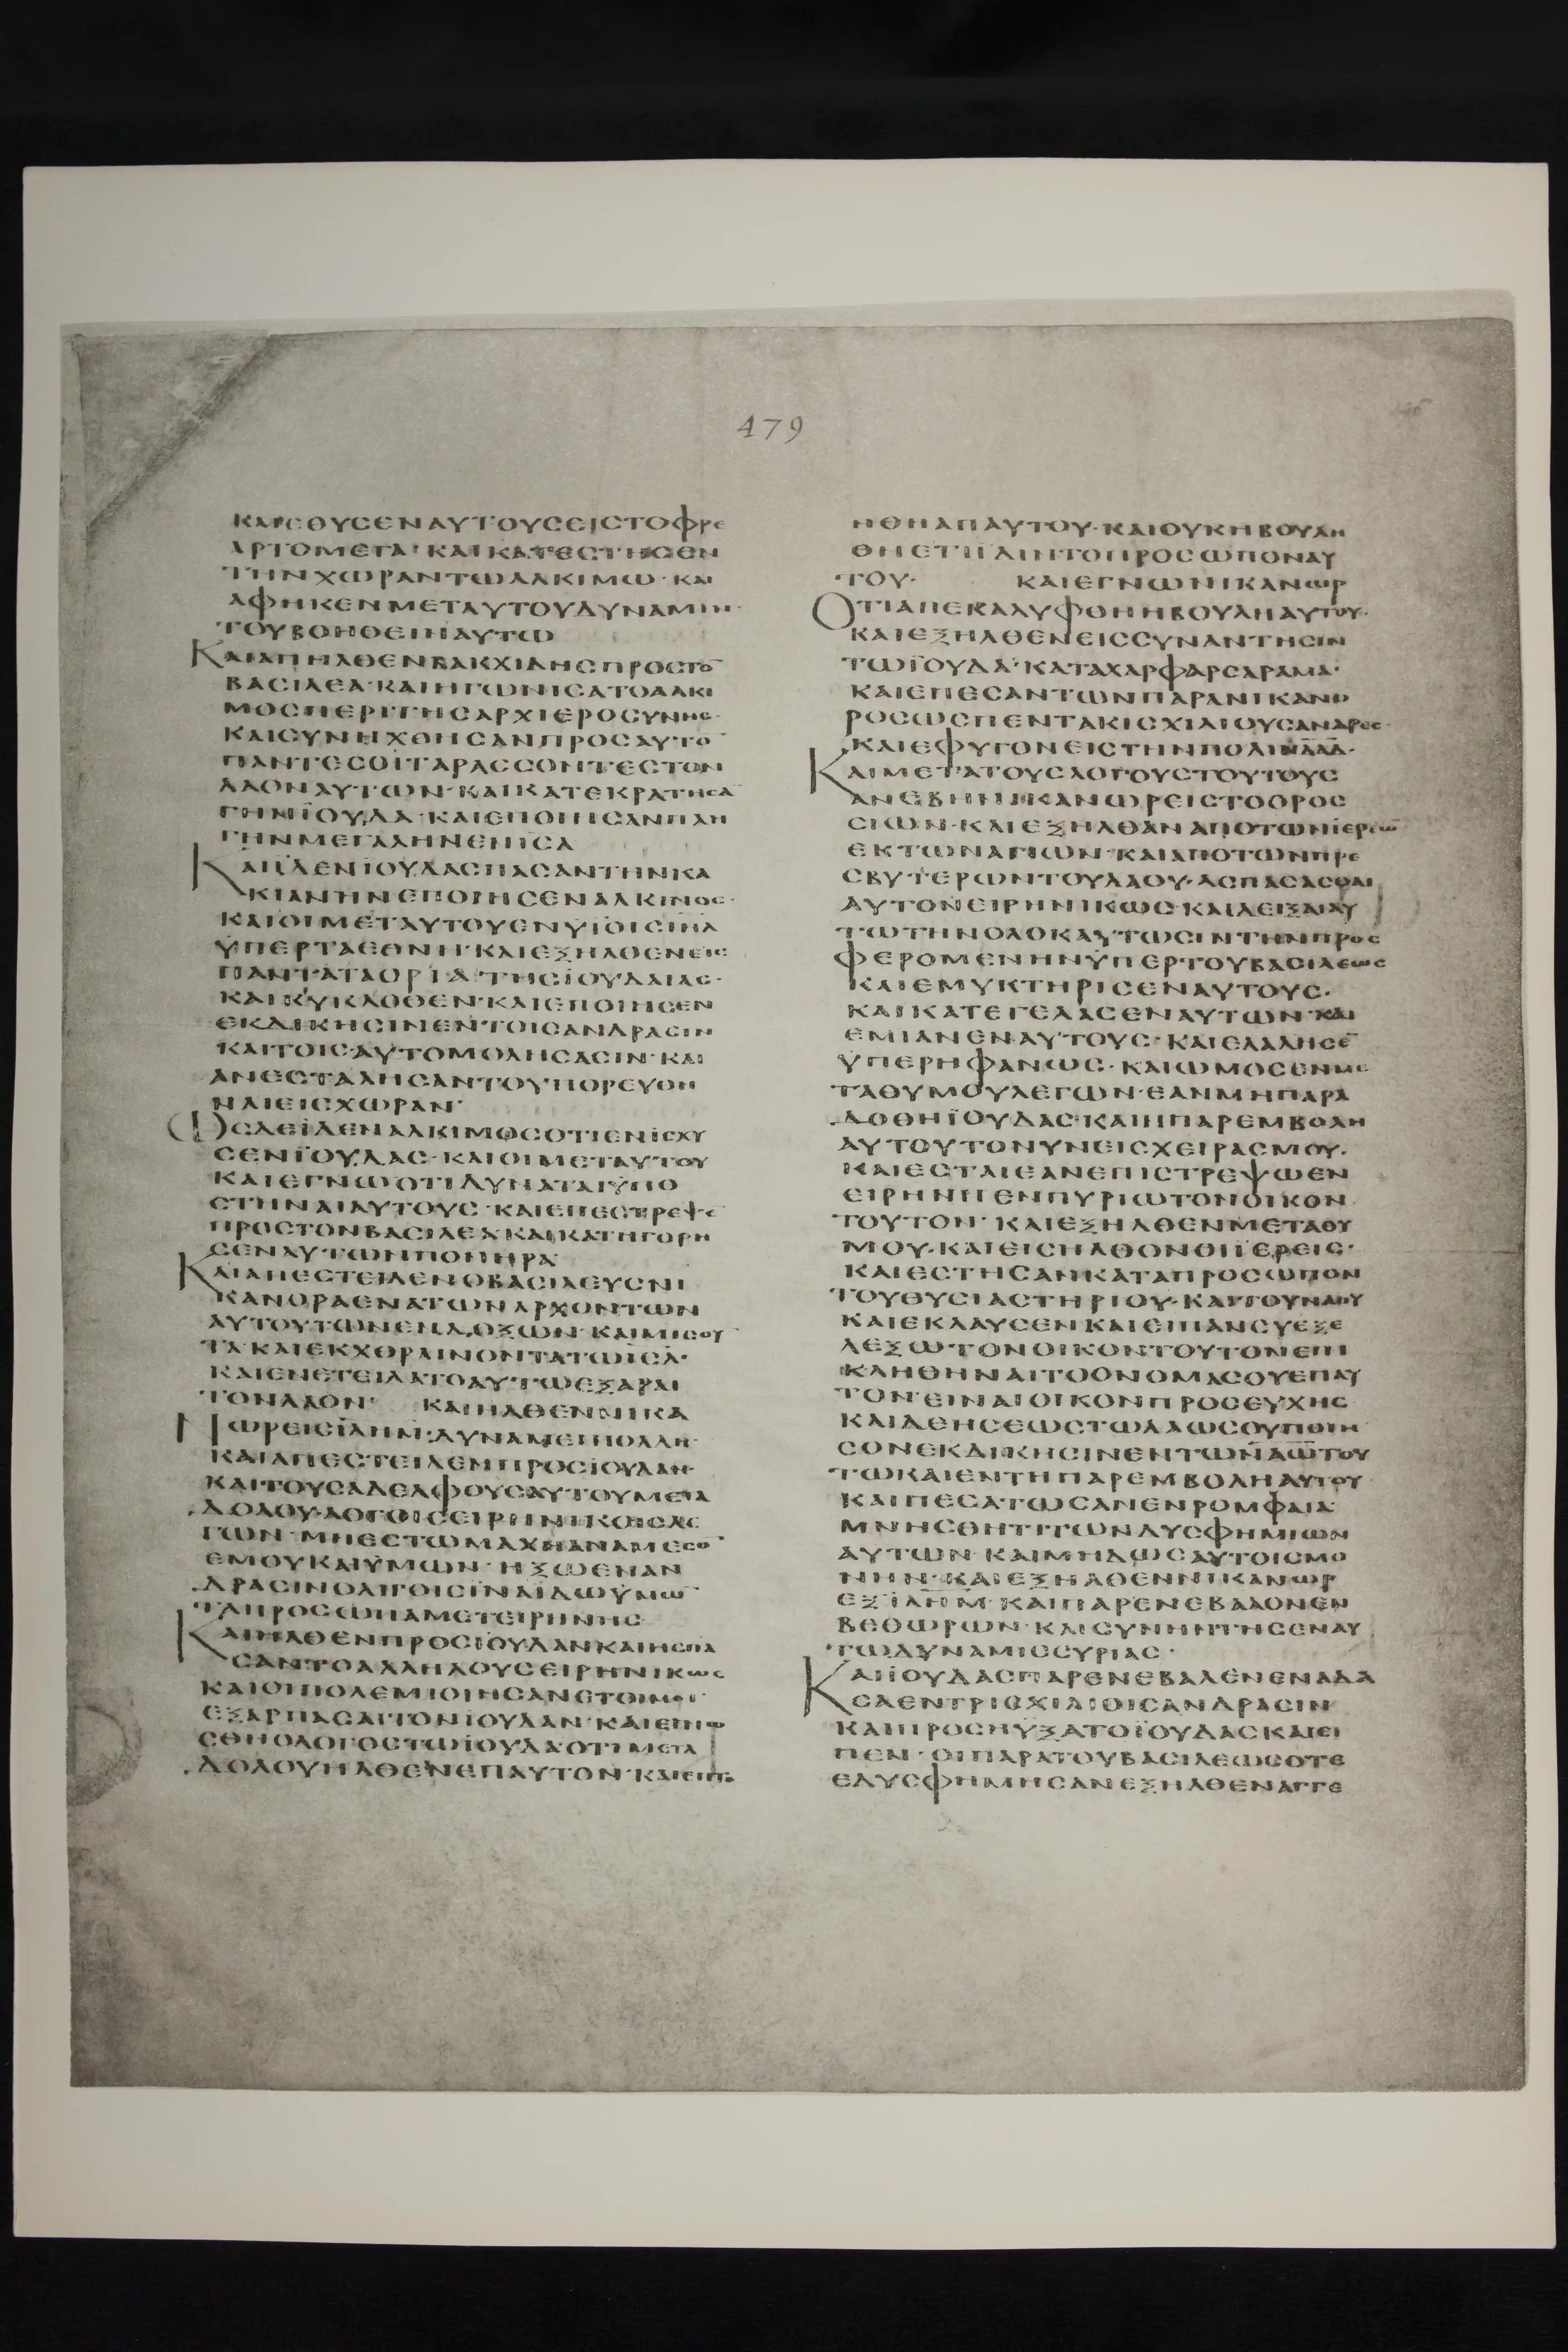 479
ΚΑΙΕΘΥCΕΝΑΥΤΟΥCΕΙCΤΟΦΡΕ
ΑΡΤΟΜΕΓΑ· ΚΑΙΚΑΤΕCΤΗCΕΝ
ΤΗΝΧΩΡΑΝΤΩΑΛΚΙΜΩ· ΚΑΙ
ΑΦΗΚΕΝΜΕΤΑΥΤΟΥΔΥΝΑΜΙΝ·
ΤΟΥΒΟΗΘΕΙΝΑΥΤΩ
ΚΑΙΑΠΗΛΘΕΝΒΑΚΧΙΔΗCΠΡΟCΤΟ̅
ΒΑCΙΛΕΑ· ΚΑΙΗΓΩΝΙCΑΤΟΑΛΚΙ
ΜΟCΠΕΡΙΤΗCΑΡΧΙΕΡΟCΥΝΗC·
ΚΑΙCΥΝΗΧΘΗCΑΝΠΡΟCΑΥΤΟ̅
ΠΑΝΤΕCΟΙΤΑΡΑCCΟΝΤΕCΤΟΝ
ΛΑΟΝΑΥΤΩΝ· ΚΑΙΚΑΤΕΚΡΑΤΗCΑ̅
ΓΗΝΪΟΥΔΑ· ΚΑΙΕΠΟΙΗCΑΝΠΛΗ
ΓΗΝΜΕΓΑΛΗΝΕΝΙCΛ
ΚΑΙΪΔΕΝΪΟΥΔΑCΠΑCΑΝΤΗΝΚΑ
ΚΙΑΝΗΝΕΠΟΙΗCΕΝΑΛΚΙΜΟC·
ΚΑΙΟΙΜΕΤΑΥΤΟΥΕΝΥΪΟΙCΙΗΛ
ΫΠΕΡΤΑΕΘΝΗ· ΚΑΙΕΞΗΛΘΕΝΕΙC
ΠΑΝΤΑΤΑΟΡΙΑ ΤΗCΪΟΥΔΑΙΑC·
ΚΑΙΚΥΚΛΟΘΕΝ· ΚΑΙΕΠΟΙΗCΕΝ
ΕΚΔΙΚΗCΙΝΕΝΤΟΙCΑΝΔΡΑCΙΝ
ΚΑΙΤΟΙCΑΥΤΟΜΟΛΗCΑCΙΝ· ΚΑΙ
ΑΝΕCΤΑΛΗCΑΝΤΟΥΠΟΡΕΥΘΗ
ΝΑΙΕΙCΧΩΡΑΝ·
ΩCΔΕΪΔΕΝΑΛΚΙΜΟCΟΤΙΕΝΙCΧΥ
CΕΝΪΟΥΔΑC· ΚΑΙΟΙΜΕΤΑΥΤΟΥ
ΚΑΙΕΓΝΩΟΤΙΔΥΝΑΤΑΙΫΠΟ
CΤΗΝΑΙΑΥΤΟΥC· ΚΑΙΕΠΕCΤΡΕΨΕ
ΠΡΟCΤΟΝΒΑCΙΛΕΑΚΑΙΚΑΤΗΓΟΡΗ
CΕΝΑΥΤΩΝΠΟΝΗΡΑ·
ΚΑΙΑΠΕCΤΕΙΛΕΝΟΒΑCΙΛΕΥCΝΙ
ΚΑΝΟΡΑΕΝΑΤΩΝΑΡΧΟΝΤΩΝ
ΑΥΤΟΥΤΩΝΕΝΔΟΞΩΝ· ΚΑΙΜΙCΟΥ̅
ΤΑ· ΚΑΙΕΚΧΘΡΑΙΝΟΝΤΑΤΩΪCΛ·
ΚΑΙΕΝΕΤΕΙΛΑΤΟΑΥΤΩΕΞΑΡΑΙ
ΤΟΝΛΑΟΝ· ΚΑΙΗΛΘΕΝΝΙΚΑ
ΝΩΡΕΙCΙΛΗΜ· ΔΥΝΑΜΕΙΠΟΛΛΗ·
ΚΑΙΑΠΕCΤΕΙΛΕΝΠΡΟCΪΟΥΔΑΝ·
ΚΑΙΤΟΥCΑΔΕΛΦΟΥCΑΥΤΟΥΜΕΤΑ
ΔΟΛΟΥ· ΛΟΓΟΙCΕΙΡΗΝΙΚΟΙCΛΕ
ΓΩΝ· ΜΗΕCΤΩΜΑΧΗΑΝΑΜΕCΟ̅
ΕΜΟΥΚΑΙΫΜΩΝ· ΗΞΩΕΝΑΝ
ΔΡΑCΙΝΟΛΙΓΟΙCΪΝΑΪΔΩΫΜΩ̅
ΤΑΠΡΟCΩΠΑΜΕΤΕΙΡΗΝΗC·
ΚΑΙΗΛΘΕΝΠΡΟCΪΟΥΔΑΝΚΑΙΗCΠΑ
CΑΝΤΟΑΛΛΗΛΟΥCΕΙΡΗΝΙΚΩC
ΚΑΙΟΙΠΟΛΕΜΙΟΙΗCΑΝΕΤΟΙΜΟΙ·
ΕΞΑΡΠΑCΑΙΤΟΝΪΟΥΔΑΝ· ΚΑΙΕΓΝΩ
CΘΗΟΛΟΓΟCΤΩΪΟΥΔΑΟΤΙΜΕΤΑ
ΔΟΛΟΥΗΛΘΕΝΕΠΑΥΤΟΝ· ΚΑΙΕΠΤΟ
ΗΘΗΑΠΑΥΤΟΥ· ΚΑΙΟΥΚΗΒΟΥΛΗ
ΘΗΕΤΙΪΔΙΝΤΟΠΡΟCΩΠΟΝΑΥ
ΤΟΥ· ΚΑΙΕΓΝΩΝΙΚΑΝΩΡ
ΟΤΙΑΠΕΚΑΛΥΦΘΗΗΒΟΥΛΗΑΥΤΟΥ·
ΚΑΙΕΞΗΛΘΕΝΕΙCCΥΝΑΝΤΗCΙΝ
ΤΩΪΟΥΔΑ· ΚΑΤΑΧΑΡΦΑΡCΑΡΑΜΑ·
ΚΑΙΕΠΕCΑΝΤΩΝΠΑΡΑΝΙΚΑΝΟ
ΡΟCΩCΠΕΝΤΑΚΙCΧΙΛΙΟΥCΑΝΔΡΕC·
ΚΑΙΕΦΥΓΟΝΕΙCΤΗΝΠΟΛΙΝΔΑΔ·
ΚΑΙΜΕΤΑΤΟΥCΛΟΓΟΥCΤΟΥΤΟΥC
ΑΝΕΒΗΝΙΚΑΝΩΡΕΙCΤΟΟΡΟC
CΙΩΝ· ΚΑΙΕΞΗΛΘΑΝΑΠΟΤΩΝΪΕΡΕΩ̅
ΕΚΤΩΝΑΓΙΩΝ· ΚΑΙΑΠΟΤΩΝΠΡΕ
CΒΥΤΕΡΩΝΤΟΥΛΑΟΥ· ΑCΠΑCΑCΘΑΙ
ΑΥΤΟΝΕΙΡΗΝΙΚΩC· ΚΑΙΔΕΙΞΑΙΑΥ
ΤΩΤΗΝΟΛΟΚΑΥΤΩCΙΝΤΗΝΠΡΟC
ΦΕΡΟΜΕΝΗΝΫΠΕΡΤΟΥΒΑCΙΛΕΩC
ΚΑΙΕΜΥΚΤΗΡΙCΕΝΑΥΤΟΥC·
ΚΑΙΚΑΤΕΓΕΛΑCΕΝΑΥΤΩΝ· ΚΑΙ
ΕΜΙΑΝΕΝΑΥΤΟΥC· ΚΑΙΕΛΑΛΗCΕ̅
ΫΠΕΡΗΦΑΝΩC· ΚΑΙΩΜΟCΕΝΜΕ
ΤΑΘΥΜΟΥΛΕΓΩΝ· ΕΑΝΜΗΠΑΡΑ
ΔΟΘΗΪΟΥΔΑC· ΚΑΙΗΠΑΡΕΜΒΟΛΗ
ΑΥΤΟΥΤΟΝΥΝΕΙCΧΕΙΡΑCΜΟΥ·
ΚΑΙΕCΤΑΙΕΑΝΕΠΙCΤΡΕΨΩΕΝ
ΕΙΡΗΝΗΕΝΠΥΡΙΩΤΟΝΟΙΚΟΝ
ΤΟΥΤΟΝ· ΚΑΙΕΞΗΛΘΕΝΜΕΤΑΘΥ
ΜΟΥ· ΚΑΙΕΙCΗΛΘΟΝΟΙΪΕΡΕΙC·
ΚΑΙΕCΤΗCΑΝΚΑΤΑΠΡΟCΩΠΟΝ
ΤΟΥΘΥCΙΑCΤΗΡΙΟΥ· ΚΑΙΤΟΥΝΑΟΥ
ΚΑΙΕΚΛΑΥCΕΝΚΑΙΕΙΠΑΝCΥΕΞΕ
ΛΕΞΩΤΟΝΟΙΚΟΝΤΟΥΤΟΝΕΠΙ
ΚΛΗΘΗΝΑΙΤΟΟΝΟΜΑCΟΥΕΠΑΥ
ΤΟΝ· ΕΙΝΑΙΟΙΚΟΝΠΡΟCΕΥΧΗC
ΚΑΙΔΕΗCΕΩCΤΩΛΑΩCΟΥΠΟΙΗ
CΟΝΕΚΔΙΚΗCΙΝΕΝΤΩΑΝΩΤΟΥ
ΤΩΚΑΙΕΝΤΗΠΑΡΕΜΒΟΛΗΑΥΤΟΥ·
ΚΑΙΠΕCΑΤΩCΑΝΕΝΡΟΜΦΑΙΑ·
ΜΝΗCΘΗΤΙΤΩΝΔΥCΦΗΜΙΩΝ
ΑΥΤΩΝ· ΚΑΙΜΗΔΩCΑΥΤΟΙCΜΟ
ΝΗΝ· ΚΑΙΕΞΗΛΘΕΝΝΙΚΑΝΩΡ
ΕΞΙΛΗΜ· ΚΑΙΠΑΡΕΝΕΒΑΛΟΝΕΝ
ΒΕΘΩΡΩΝ· ΚΑΙCΥΝΗΝΤΗCΕΝΑΥ
ΤΩΔΥΝΑΜΙCCΥΡΙΑC·
ΚΑΙΪΟΥΔΑCΠΑΡΕΝΕΒΑΛΕΝΕΝΑΔΑ
CΑΕΝΤΡΙCΧΙΛΙΟΙCΑΝΔΡΑCΙΝ
ΚΑΙΠΡΟCΗΥΞΑΤΟΪΟΥΔΑCΚΑΙΕΙ
ΠΕΝ· ΟΙΠΑΡΑΤΟΥΒΑCΙΛΕΩCΟΤΕ
ΕΔΥCΦΗΜΗCΑΝΕΞΗΛΘΕΝΑΓΓΕ